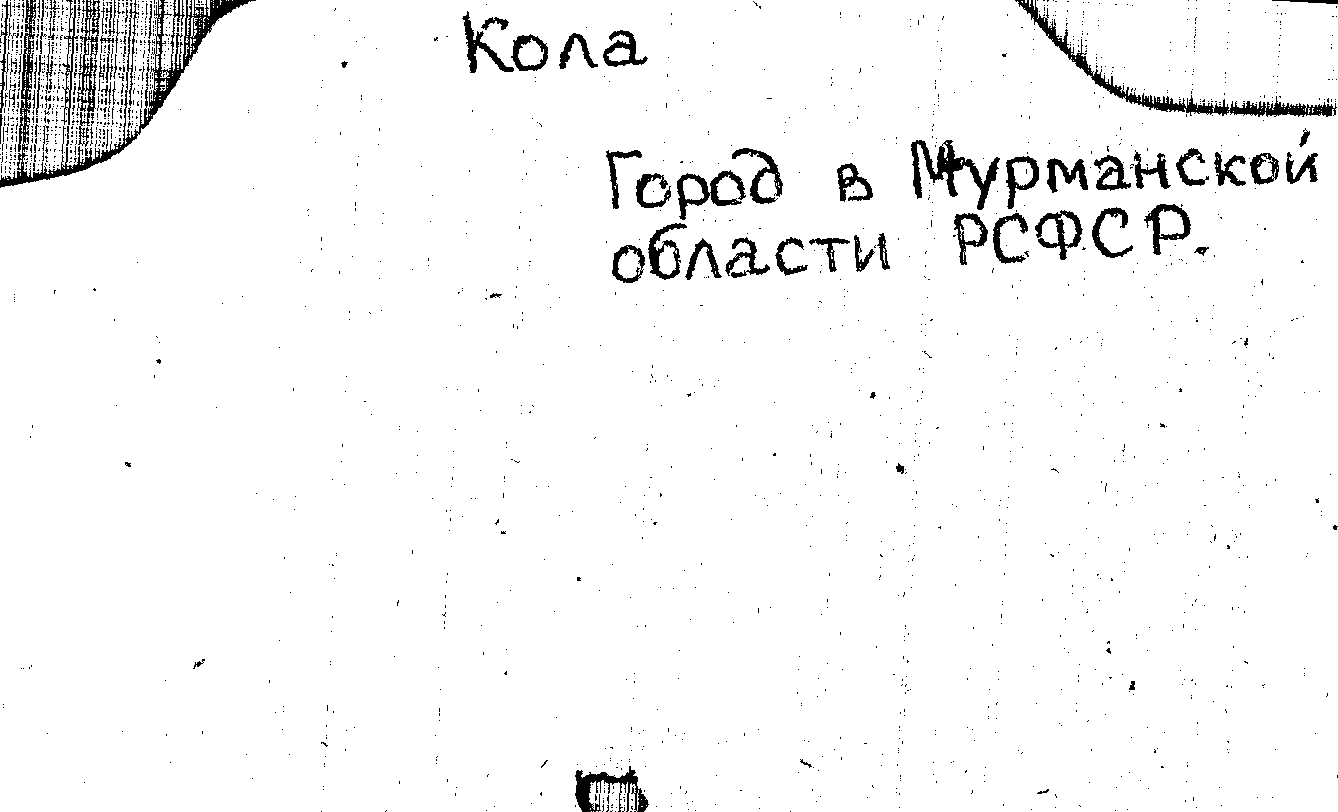 Кола
Город в Мурманской
области РСФСР.